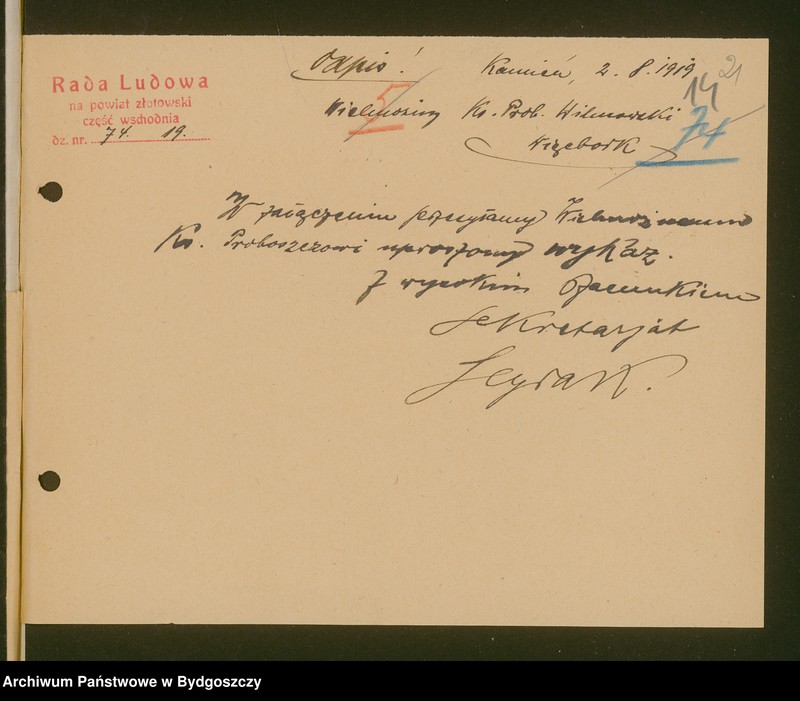 Rada Ludowa
na powiat złotowski
część wschodnia
dz. nr. 74. 19.
Odpis!
Kamień, 2. 8. 1919
21
14
5
74
Wielmożny Ks. Prob. Wilmowski
Więcbork
W załączeniu przesyłamy Wielmożnemu
Ks. Proboszczowi uproszony wykaz.
Z wysokim szacunkiem
Sekretarjat
Archiwum Państwowe w Bydgoszczy